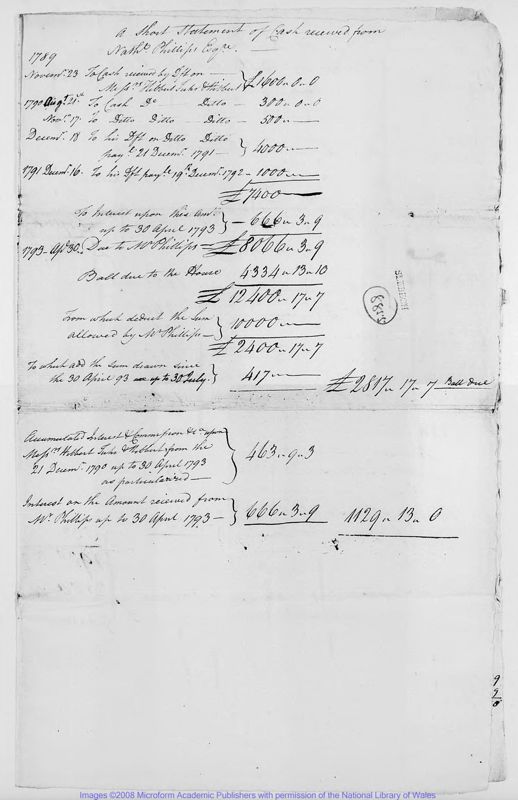 A Short Statement of Cash received from
Nathl. Phillips Esqre.
1789
Novemr. 23 To Cash received by Dft on
Messrs Hibbert Fuhr & Hibbert } £1600 " 0 " 0
1790 Augt. 21st. To Cash Do Ditto - 300 " 0 " 0
Novr. 17. To Ditto Ditto - Ditto - 500 " —
Decemr. 18 To his Dft on Ditto Ditto
payle. 21 Decemr. 1791 — } 4000 " —
1791 Decemr. 16. To his Dft payle. 19th. Decemr. 1792 - 1000 " —
£7400 —
To Interest upon this Amt.
up to 30 April 1793 } — 666 " 3 " 9
1793 - Apl. 30. Due to Mr Phillips = £8066 " 3 " 9
Ball due to the House 4334 " 13 " 10
£12400 " 17 " 7
From which deduct the Sum
allowed by Mr Phillips — } 10000 " —
£2400 " 17 " 7
To which add the Sum drawn since
the 30 April 93 up to 30 July. } 417 " — £2817 " 17 " 7 Ball due
Accumulated Interest & Commission &ca. upon
Messrs Hibbert Fuhr & Hibbert from the
21 Decemr. 1790 up to 30 April 1793
as particularized — } 463 " 9 " 3
Interest on the Amount received from
Mr. Phillips up to 30 April 1793 — } 666 " 3 " 9 1129 " 13 " 0
8819
9
9
0
Images ©2008 Microform Academic Publishers with permission of the National Library of Wales